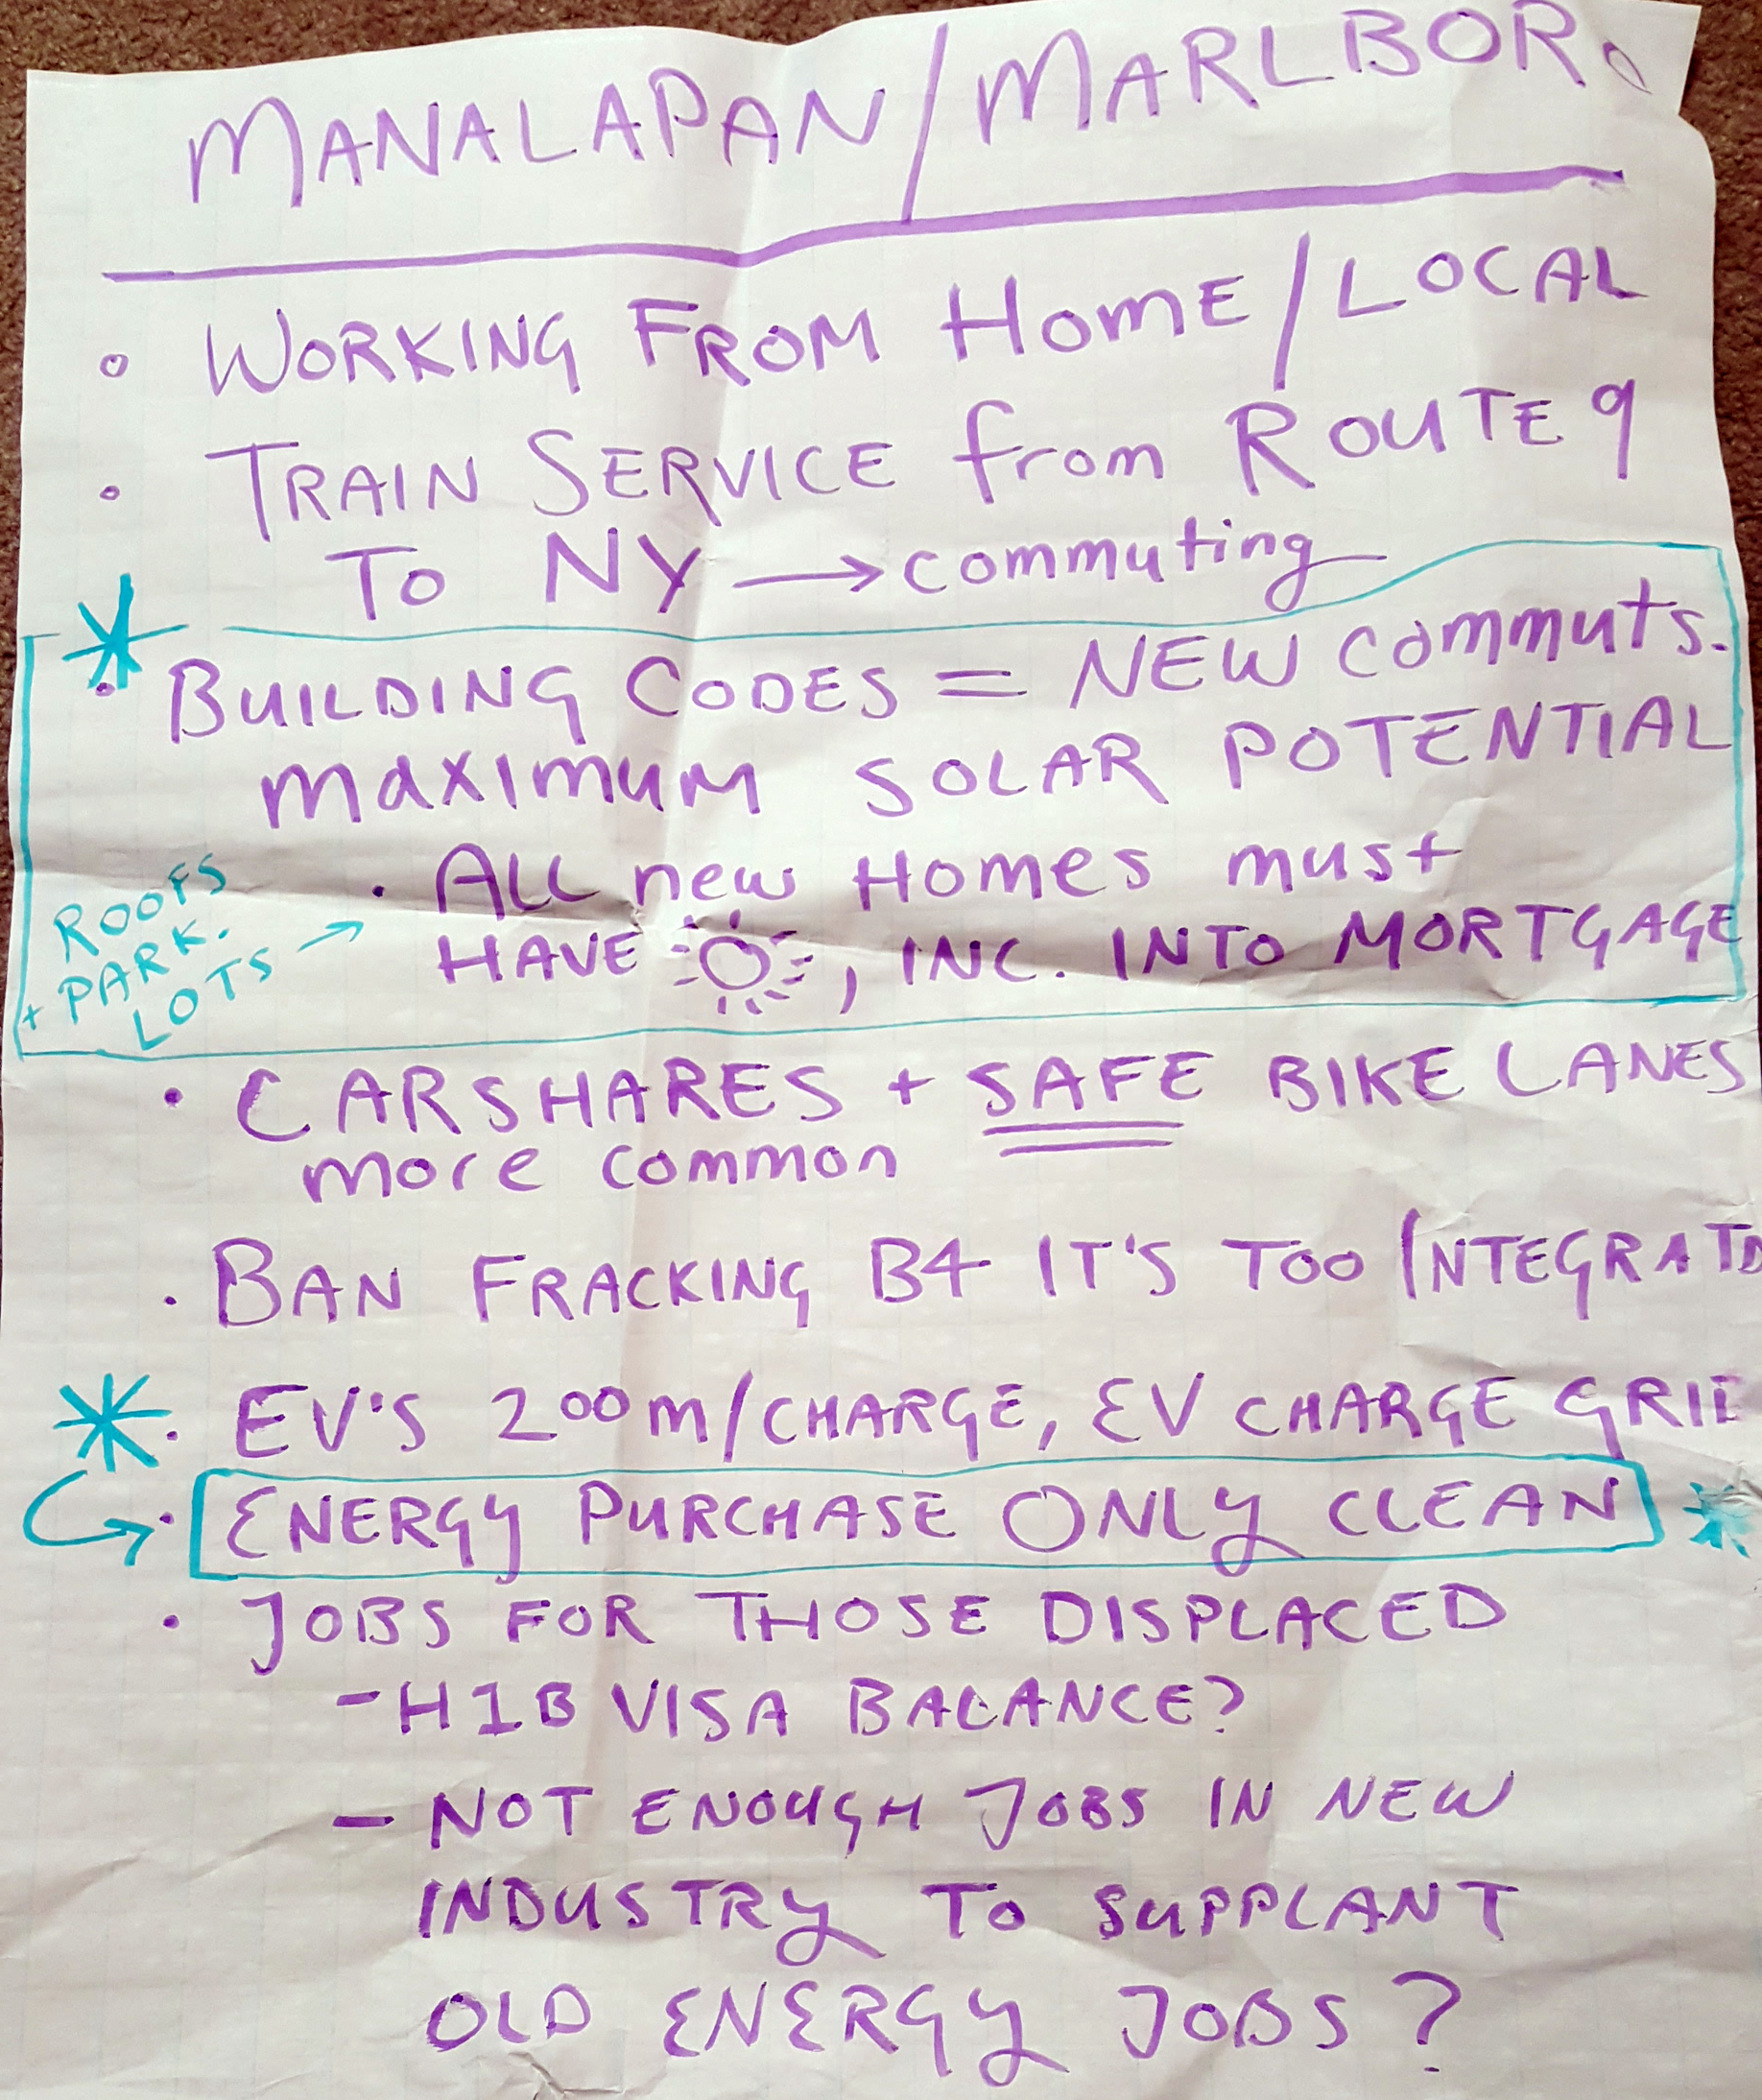 MANALAPAN/MARLBORO
• WORKING FROM HOME/LOCAL
• TRAIN SERVICE from ROUTE 9
TO NY → commuting
• BUILDING CODES = NEW commuts.
maximum SOLAR POTENTIAL
• ALL new Homes must
HAVE ☀, INC. INTO MORTGAGE
ROOFS
+ PARK.
LOTS →
• CARSHARES + SAFE BIKE LANES
more common
• BAN FRACKING B4 IT'S TOO INTEGRATD
• EV'S 200m/CHARGE, EV CHARGE GRID
• ENERGY PURCHASE ONLY CLEAN
• JOBS FOR THOSE DISPLACED
- H1B VISA BALANCE?
- NOT ENOUGH JOBS IN NEW
INDUSTRY TO SUPPLANT
OLD ENERGY JOBS?